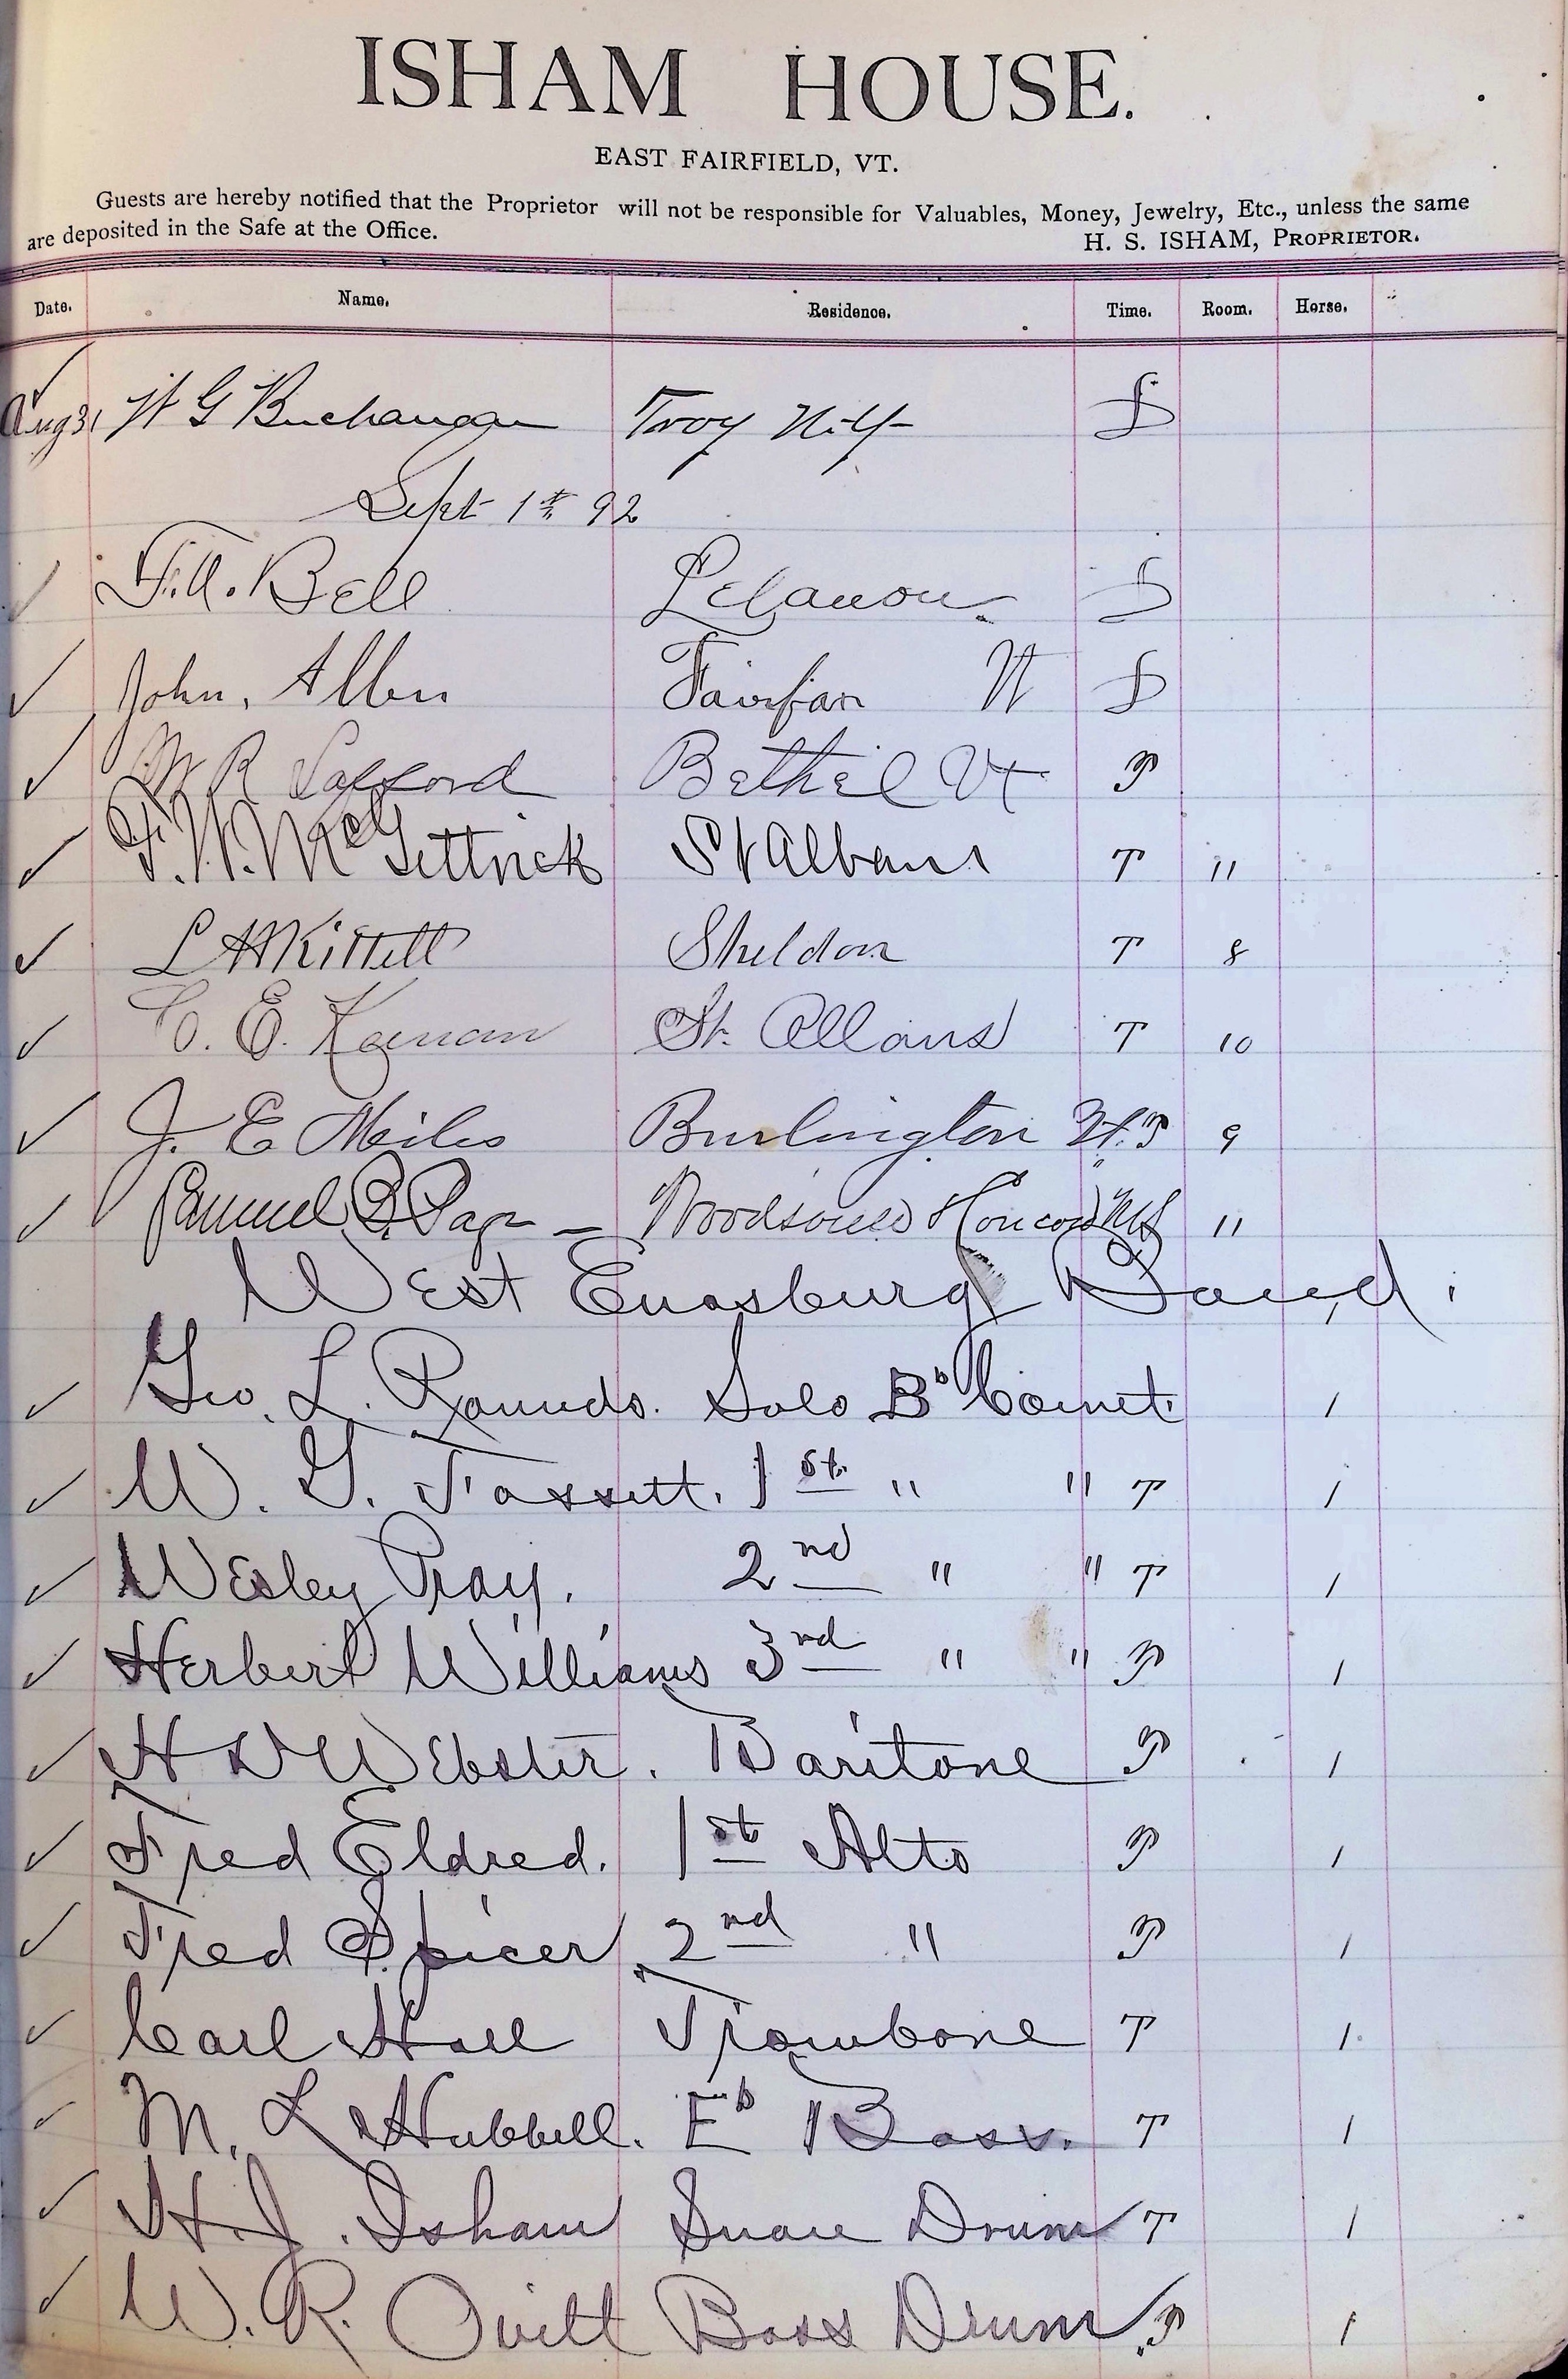 ISHAM HOUSE.
EAST FAIRFIELD, VT.
Guests are hereby notified that the Proprietor will not be responsible for Valuables, Money, Jewelry, Etc., unless the same
are deposited in the Safe at the Office. H. S. ISHAM, PROPRIETOR.
Date. Name. Residence. Time. Room. Horse.
Aug 31 W G Buchanan Troy N.Y.
Sept 1st 92
Bell Lebanon
John, Allen Fairfax Vt
M R Safford Bethel Vt P
F. W. McGettrick St Albans T 11
L H Kittell Sheldon T 8
C. E. St. Albans T 10
J. E Miles Burlington Vt. P 9
Samuel B. Page – Woodsville Concord NH 11
West Enosburg Band.
Geo. L. Rounds. Solo B♭ Cornet. 1
W. G. Fassett. 1st. " " T 1
Wesley Pray. 2nd " " T 1
Herbert Williams 3rd " " P 1
H D Webster. Baritone P 1
Fred Eldred. 1st Alto P 1
Fred Spicer 2nd " P 1
Carl Hall Trombone T 1
M. L Hubbell. E♭ Bass. T 1
H. J. Isham Snare Drum T 1
W. R. Ovitt Bass Drum P 1